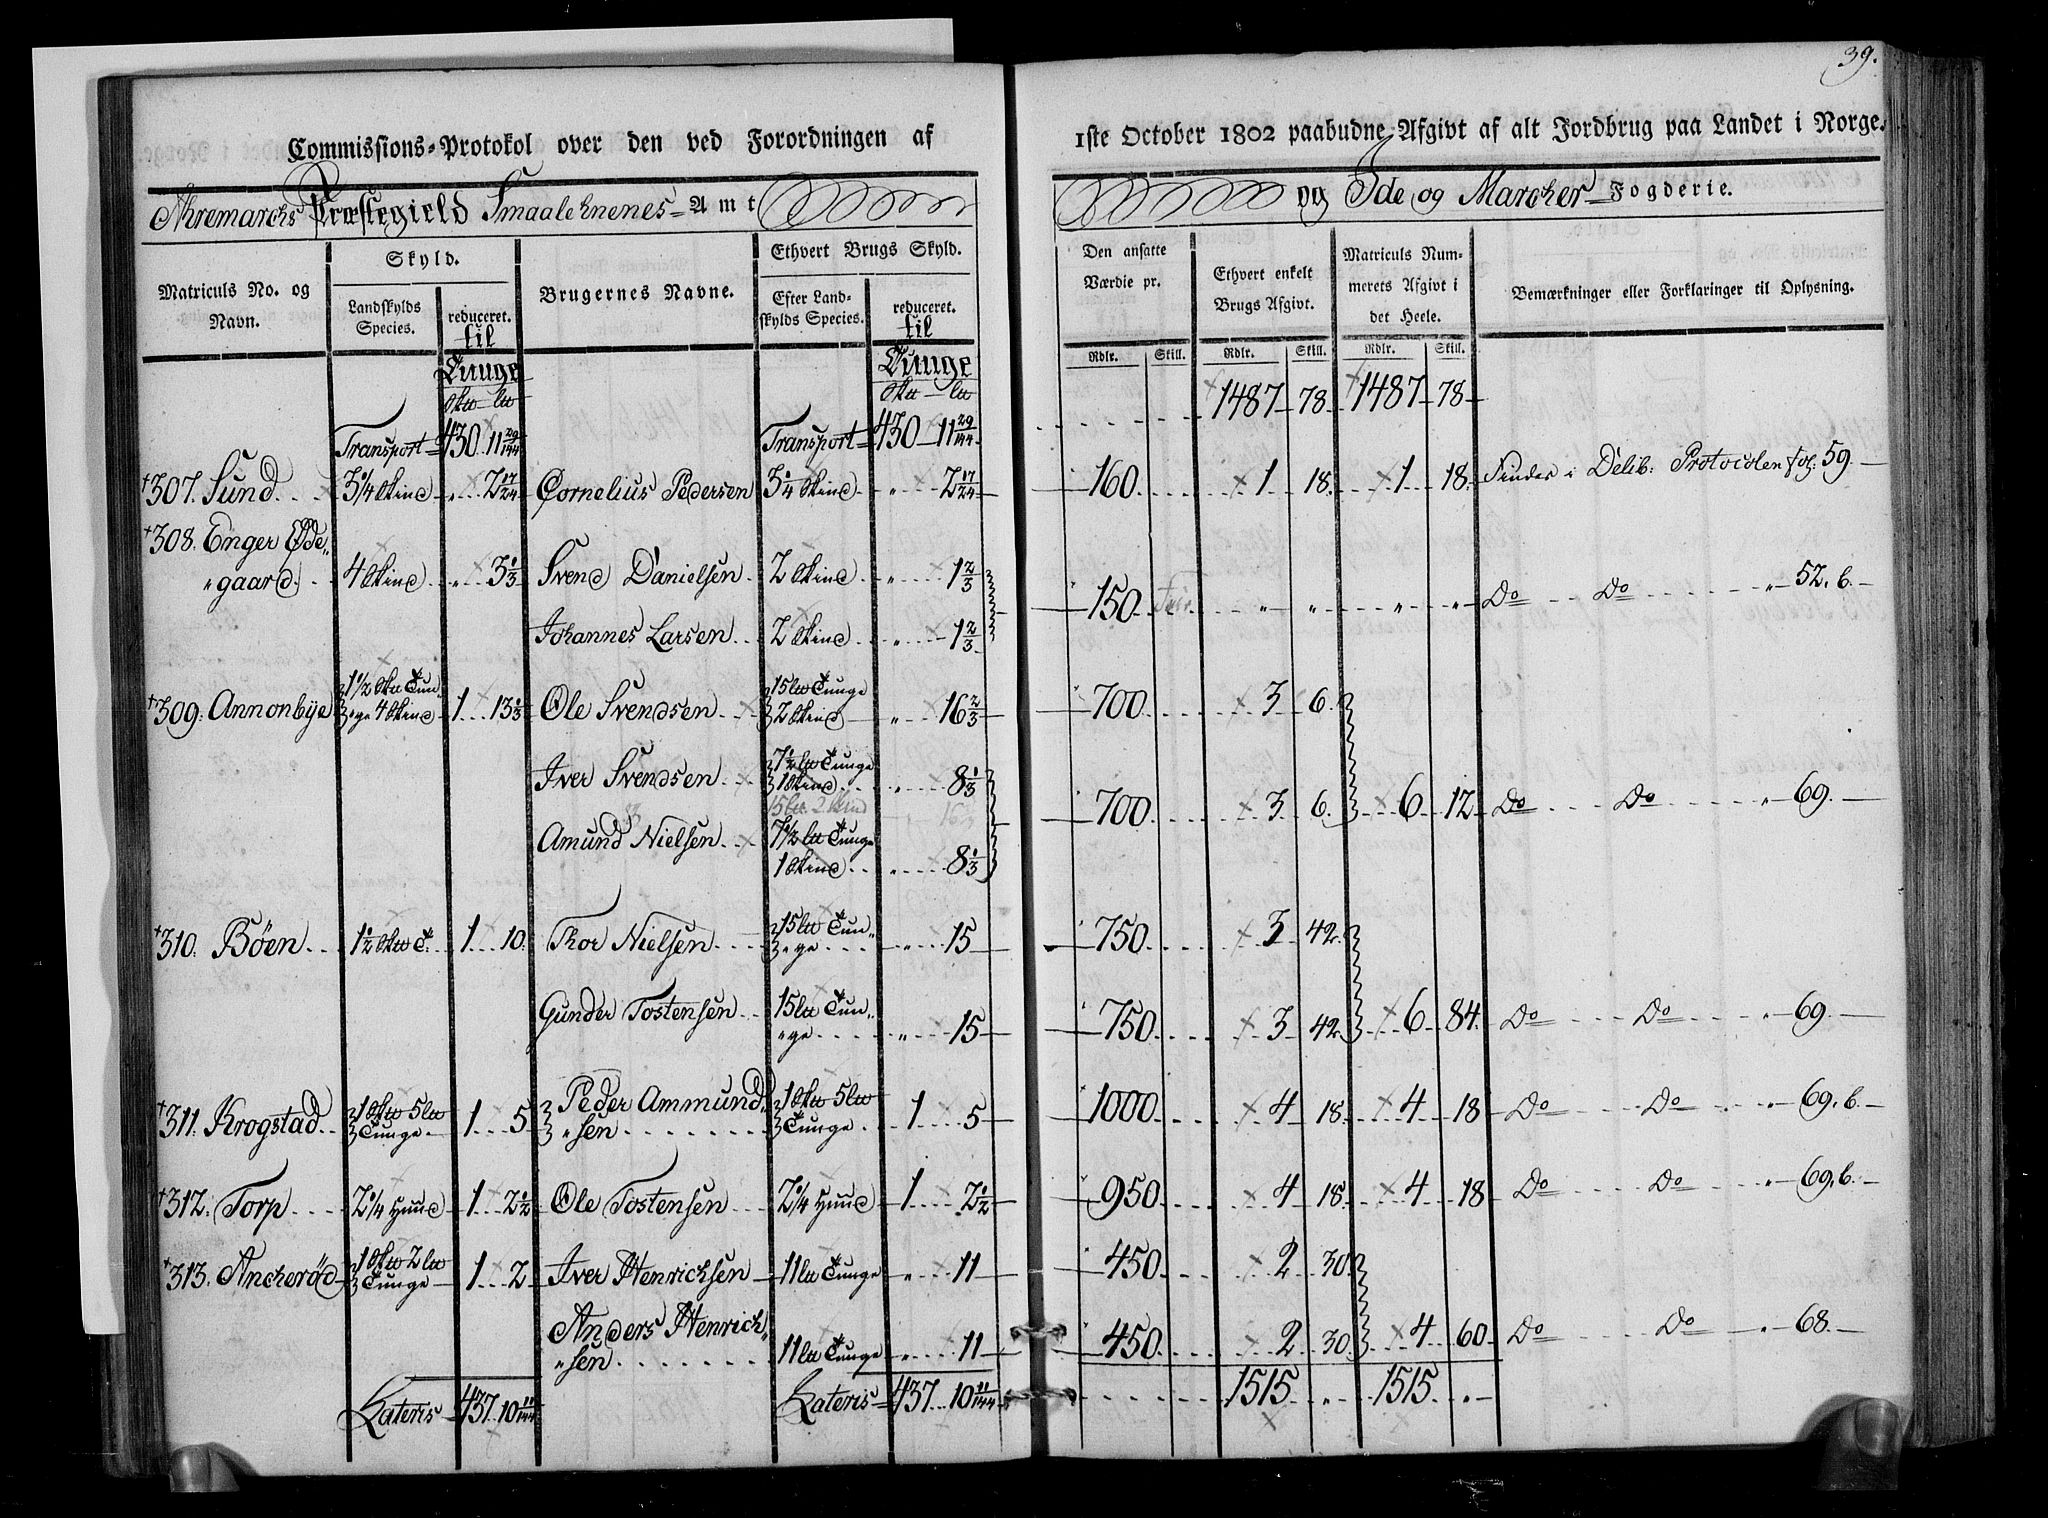 39.
Commissions-Protokol over den ved Forordningen af
1ste October 1802 paabudne Afgivt af alt Jordbrug paa Landet i Norge.
Aremarchs Præstegield Smaalehnenes Amt
og Ide og Marcher Fogderie.
Matriculs No. og Navn.
Skyld.
Landskylds Species.
reduceret. til Tunge
Brugernes Navne.
Ethvert Brugs Skyld.
Efter Landskylds Species.
reduceret. til Tunge
Den ansatte Værdie pr.
Rdlr. Skill.
Ethvert enkelt Brugs Afgivt.
Rdlr. Skill.
Matriculs Nummerets Afgivt i det Heele.
Rdlr. Skill.
Bemærkninger eller Forklaringer til Oplysning.
Transport 430 11 29/144 Transport 430 11 29/144 1487 78 1487 78
307. Sund 3 1/4 Skind " 2 17/24 Cornelius Pedersen 3 1/4 Skind " 2 17/24 160 1 18 1 18 Findes i Delib: Protocolen fol: 59
308. Enger Øde
"gaard 4 Skind " 3 1/3 Svend Danielsen 2 Skind " 1 2/3
150 " " " " Do Do " 52. b.
Johannes Larsen 2 Skind " 1 2/3
309. Annonbye 1 1/2 Skt Tun"ge 4 Skind 1 13 1/3 Ole Svendsen 15 lb Tunge 2 Skind " 16 2/3 700 3 6
Iver Svendsen 7 1/2 lb Tunge 1 Skind " 8 1/3
700 3 6 6 12 Do Do " 69.
Amund Nielsen 7 1/2 lb Tunge 1 Skind " 8 1/3
310. Böen 1 1/2 Skt T. 1 10 Thor Nielsen 15 lb Tun"ge " 15 750 3 42
Gunder Tostensen 15 lb Tun"ge " 15 750 3 42 6 84 Do Do " 69.
311. Krogstad 1 Skt 5 lb Tunge 1 5 Peder Ammund"sen 1 Skt 5 lb Tunge 1 5 1000 4 18 4 18 Do Do " 69. b.
312. Torp 2 1/4 Huud 1 2 1/2 Ole Tostensen 2 1/4 Huud 1 2 1/2 950 4 18 4 18 Do Do " 69. b.
313. Ancherød 1 Skt 2 lb Tunge 1 2 Iver Henrichsen 11 lb Tunge " 11 450 2 30
Anders Henrich"sen 11 lb Tunge " 11 450 2 30 4 60 Do Do " 68.
Lateris 437 10 11/144 Lateris 437 10 11/144 1515 " 1515 "